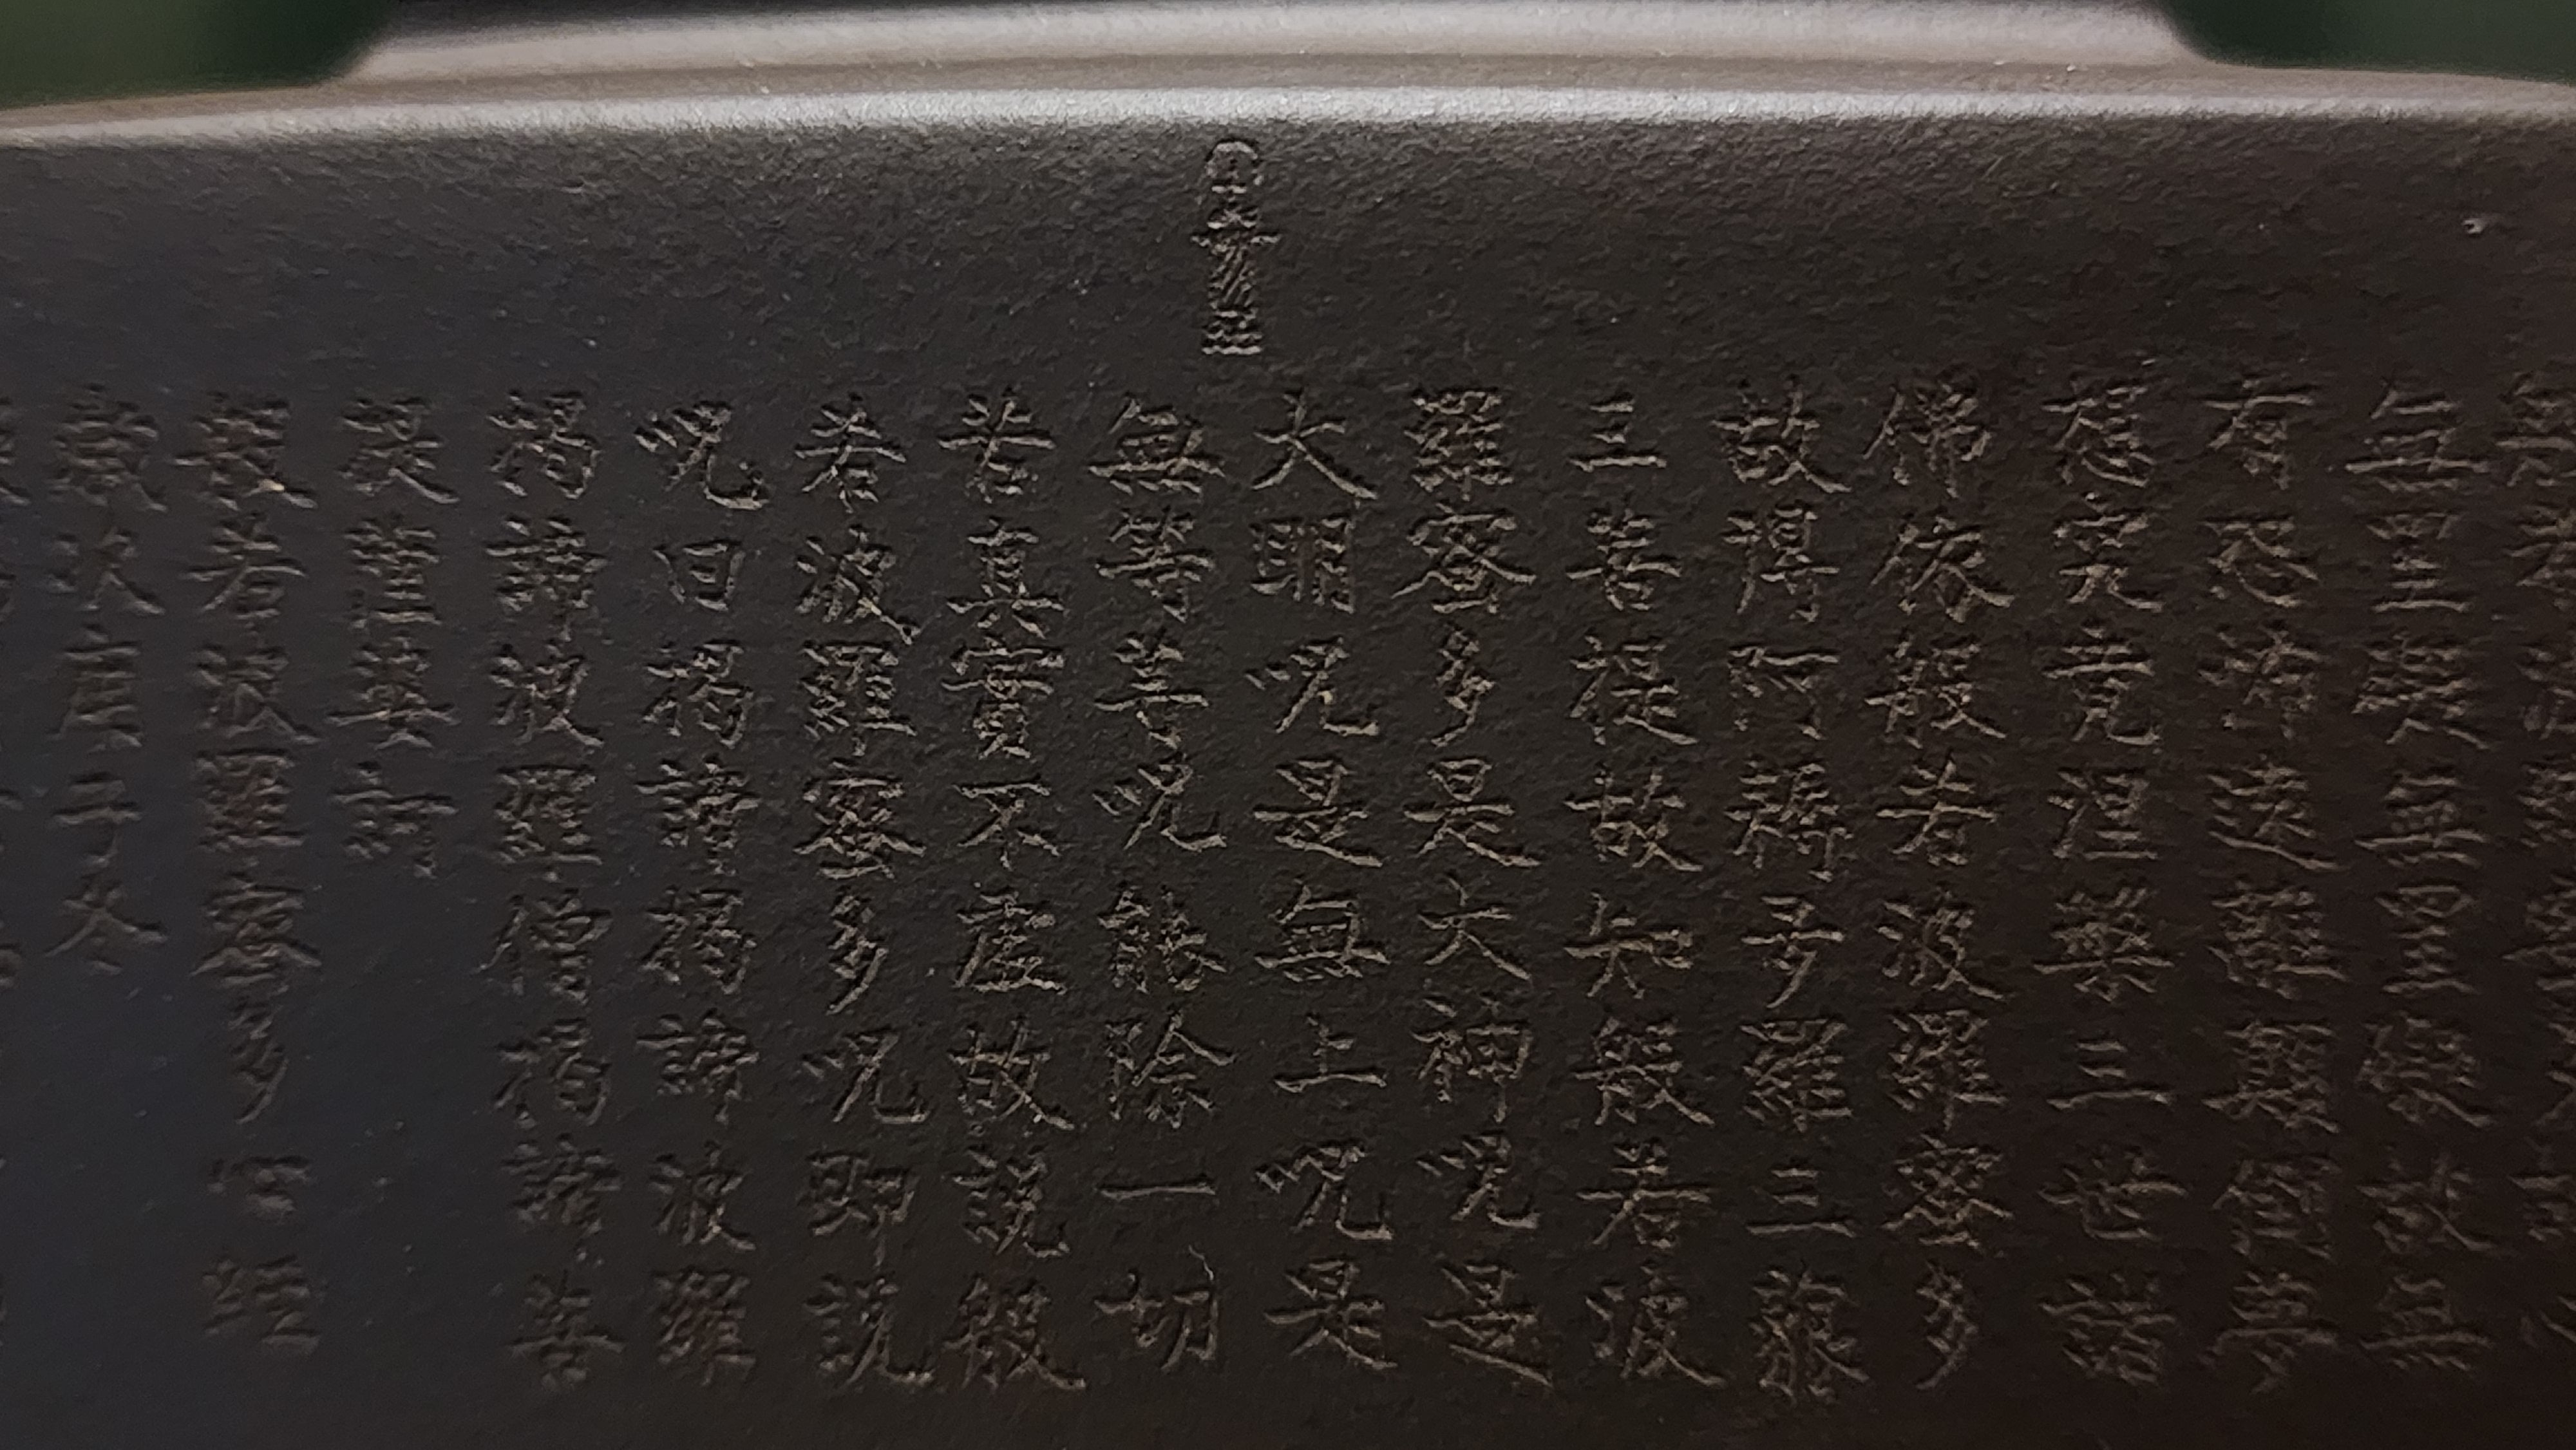 無罣礙無罣礙故無
有恐怖遠離顛倒夢
想究竟涅槃三世諸
佛依般若波羅密多
故得阿耨多羅三藐
三菩提故知般若波
羅密多是大神咒是
大明咒是無上咒是
無等等咒能除一切
苦真實不虛故說般
若波羅密多咒即說
咒曰揭諦揭諦波羅
揭諦波羅僧揭諦菩
提薩婆訶
般若波羅密多心經
歲次庚子冬